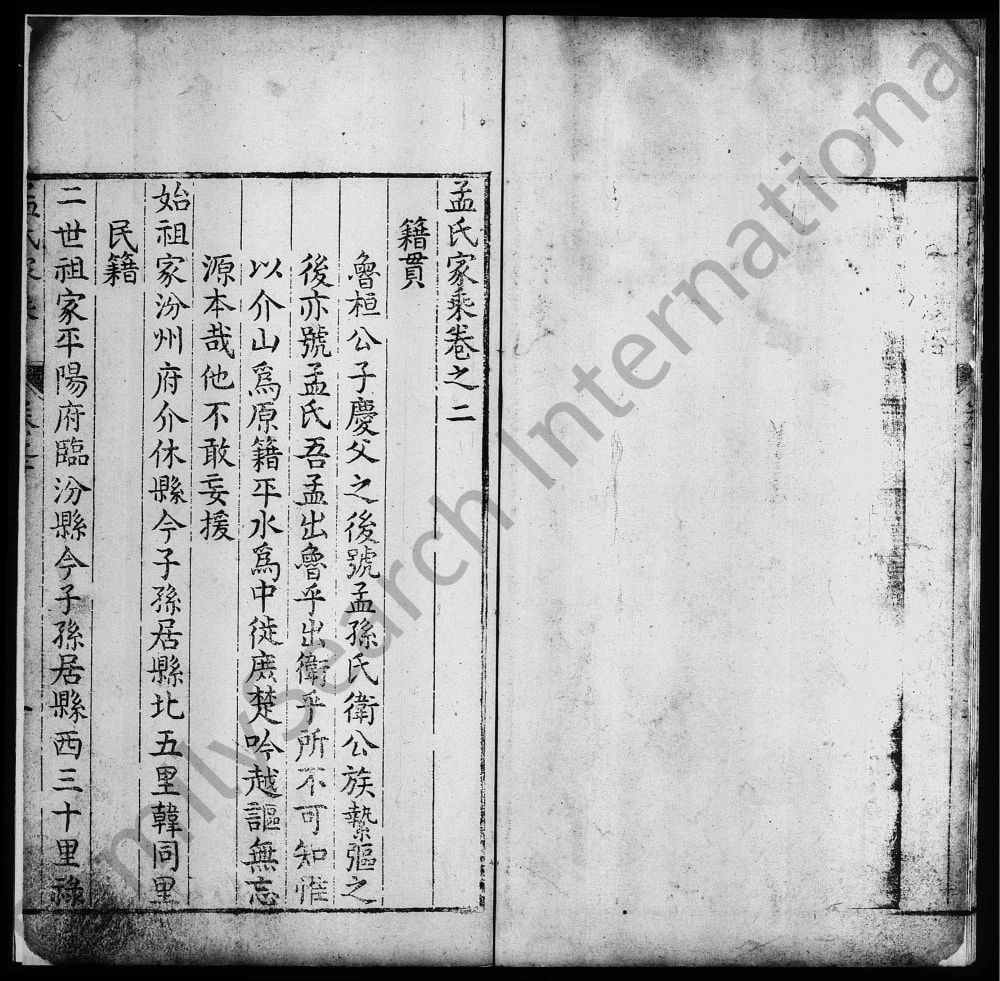 孟氏家乘卷之二
籍貫
魯桓公子慶父之後號孟孫氏衛公族縶彄之
後亦號孟氏吾孟出魯乎出衛乎所不可知惟
以介山爲原籍平水爲中徙庶楚吟越謳無忘
源本哉他不敢妄援
始祖家汾州府介休縣今子孫居縣北五里韓同里
民籍
二世祖家平陽府臨汾縣今子孫居縣西三十里祿
FamilySearch International